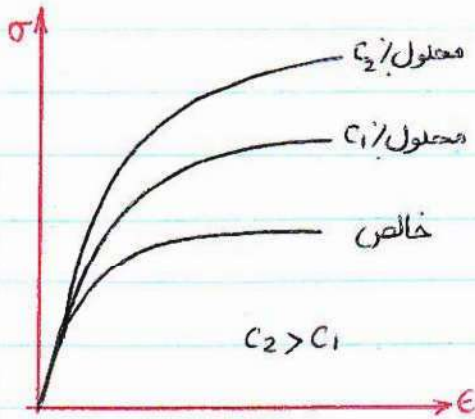 σ
C₂ ٪ محلول
C₁ ٪ محلول
خالص
C₂ > C₁
ϵ